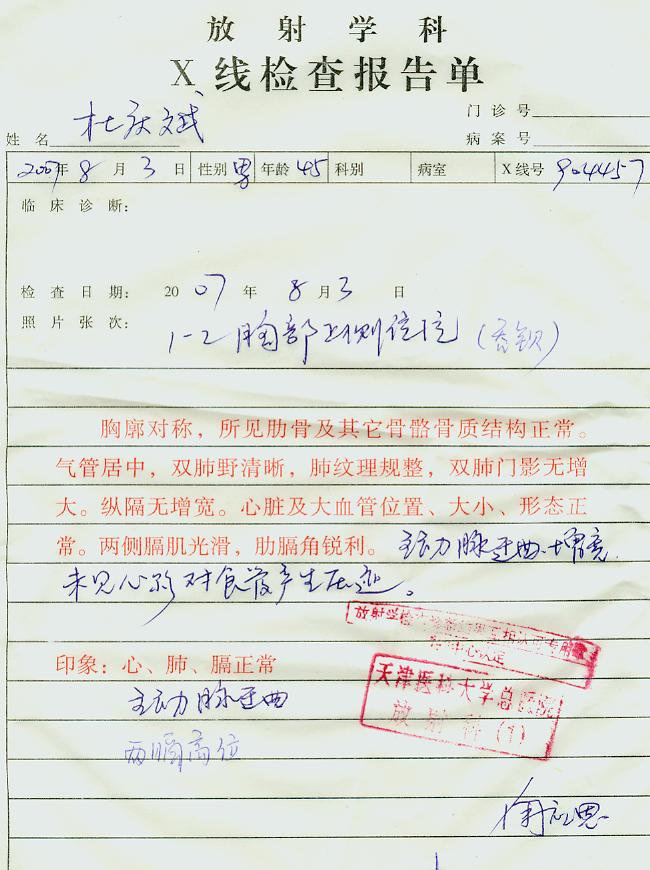 放射学科
X线检查报告单
门诊号
姓名 杜庆斌 病案号
2007年 8月 3日 性别 男 年龄 45 科别 病室 X线号 904457
临床诊断：
检查日期： 2007年 8月3日
照片张次： 1-2 胸部正侧位片（吞钡）
胸廓对称，所见肋骨及其它骨骼骨质结构正常。
气管居中，双肺野清晰，肺纹理规整，双肺门影无增
大。纵隔无增宽。心脏及大血管位置、大小、形态正
常。两侧膈肌光滑，肋膈角锐利。主动脉迂曲、增宽
未见心影对食管产生压迹。
放射学
印象：心、肺、膈正常
天津医科大学总医院
主动脉迂曲
放射科（1）
两膈高位